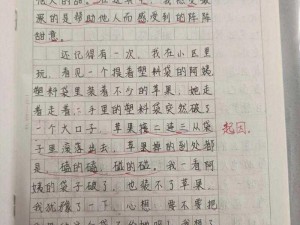 的是帮助他人而感受到的阵阵
甜意。
还记得有一次，我在小区里
玩，看见一个提着塑料袋的阿姨，
塑料袋里装着不少的苹果，她走
着走着，手里的塑料袋突然破了
一个大口子，苹果接二连三从袋
子里滚落出去，苹果掉的到处都
是，磕的磕，碰的碰，我一看阿
姨的袋子破了，也装不了苹果，
我犹豫了一下，心想：要不要把
起因